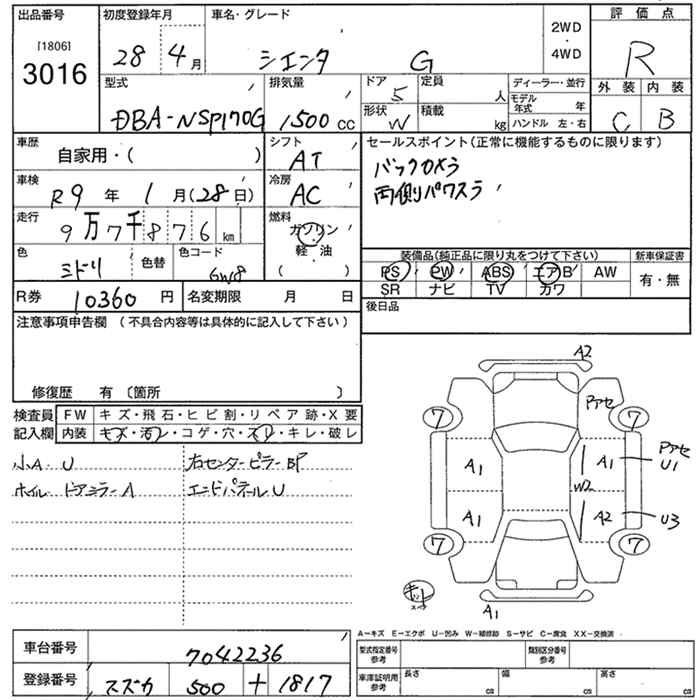 出品番号 初度登録年月 車名・グレード 2WD・4WD 評価点
[1806]
3016 28 4月 シエンタ G R
外装 内装
C B
型式 排気量 ドア 定員 ディーラー・並行
DBA-NSP170G 1500cc 5 人 モデル年式 年
形状 積載
W kg ハンドル 左・右
車歴 シフト セールスポイント(正常に機能するものに限ります)
自家用・( ) AT バックカメラ
車検 冷房 両側パワスラ
R9年 1月(28日) AC
走行 燃料
9万7千876km ガソリン・軽・油
( )
色 色替 色コード
ミドリ 6W8
装備品(純正品に限り丸をつけて下さい) 新車保証書
PS PW ABS エアB AW 有・無
SR ナビ TV カワ
R券 10360円 名変期限 月 日 後日品
注意事項申告欄 (不具合内容等は具体的に記入して下さい)
修復歴 有〔箇所 〕
検査員記入欄 FW キズ・飛石・ヒビ割・リペア跡・X要
内装 キズ・汚レ・コゲ・穴・スレ・キレ・破レ
小A・U 右センターピラーBP
ホイル・ドアミラーA エンドパネルU
A2
Pアセ
7 7
A1 A1 Pアセ
U1
W2
A1 A2 U3
7 7
キット
スペア
A1
A-キズ E-エクボ U-凹み W-補修跡 S-サビ C-腐食 XX-交換済
車台番号 7042236 型式指定番号 参考 類別区分番号 参考
登録番号 スズカ 500 + 1817 車庫証明用 参考 長さ cm 幅 cm 高さ cm